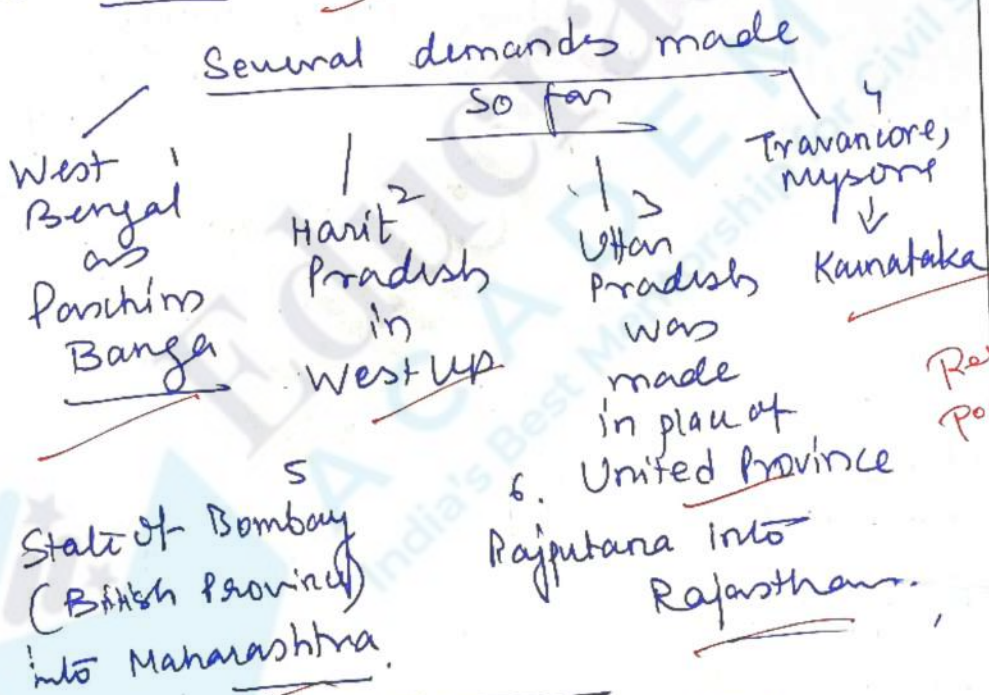 Several demands made
so far
West 1
Bengal
as
Paschim
Banga
Harit 2
Pradesh
in
West UP
3
Uttar
Pradesh
was
made
in place of
United Province
4
Travancore,
Mysore
↓
Karnataka
5
State of Bombay
(British Province)
into Maharashtra.
6.
Rajputana into
Rajasthan.
Educra
ACADEM
India's Best Mentorship for Civil S